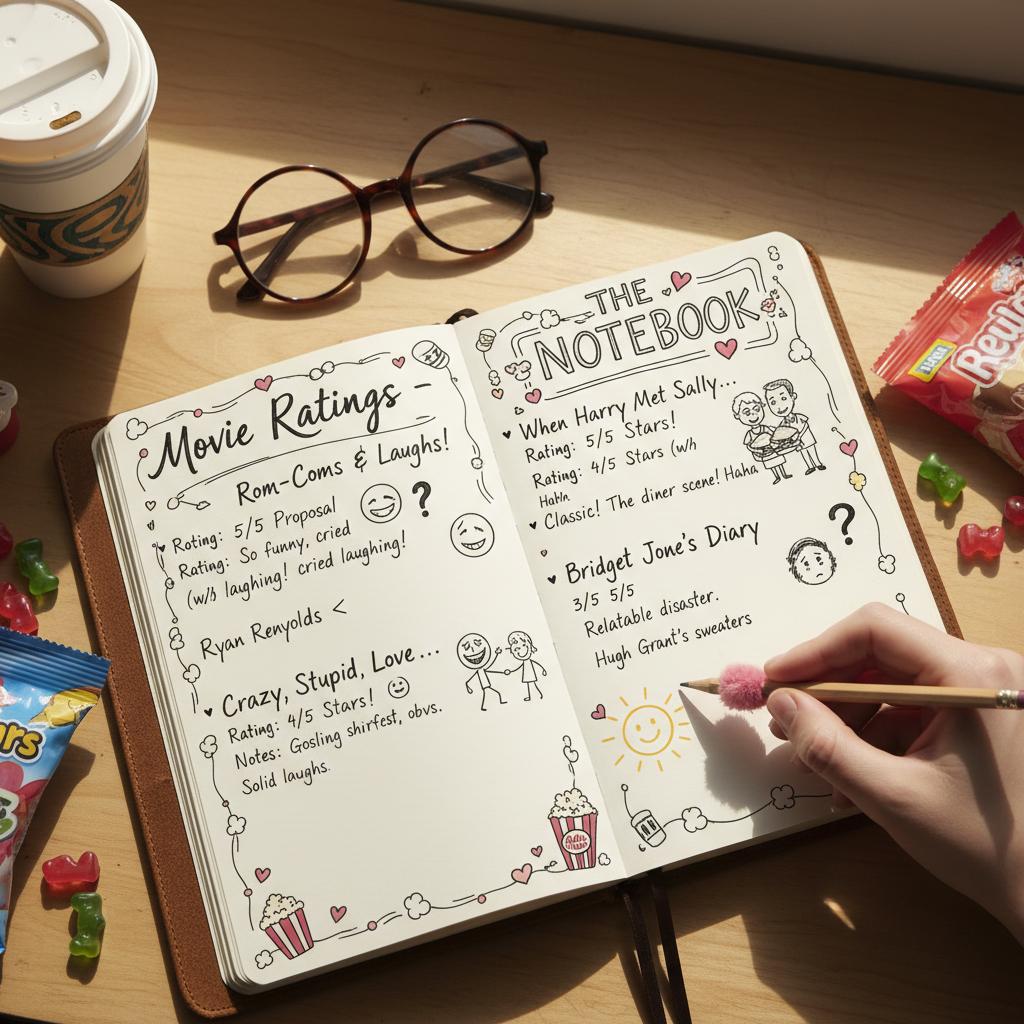 Movie Ratings -
Rom-Coms & Laughs!
Rating: 5/5 Proposal
?
Rating: So funny, cried
(w/h laughing! cried laughing!
Ryan Renyolds <
Crazy, Stupid, Love...
Rating: 4/5 Stars!
Notes: Gosling shirfest, obvs.
Solid laughs.
THE
NOTEBOOK
When Harry Met Sally...
Rating: 5/5 Stars!
Rating: 4/5 Stars (w/h
Classic! The diner scene! Haha
Bridget Jone's Diary
?
3/5 5/5
Relatable disaster.
Hugh Grant's sweaters